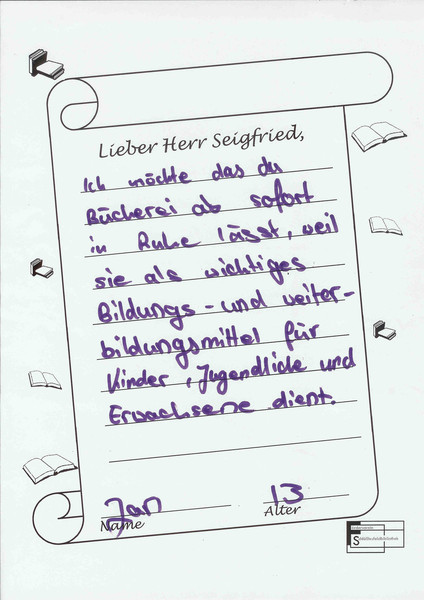 Lieber Herr Seigfried,
Ich möchte das du
Bücherei ab sofort
in Ruhe lässt, weil
sie als wichtiges
Bildungs- und weiter-
bildungsmittel für
Kinder, Jugendliche und
Erwachsene dient.
Jan 13
Name Alter